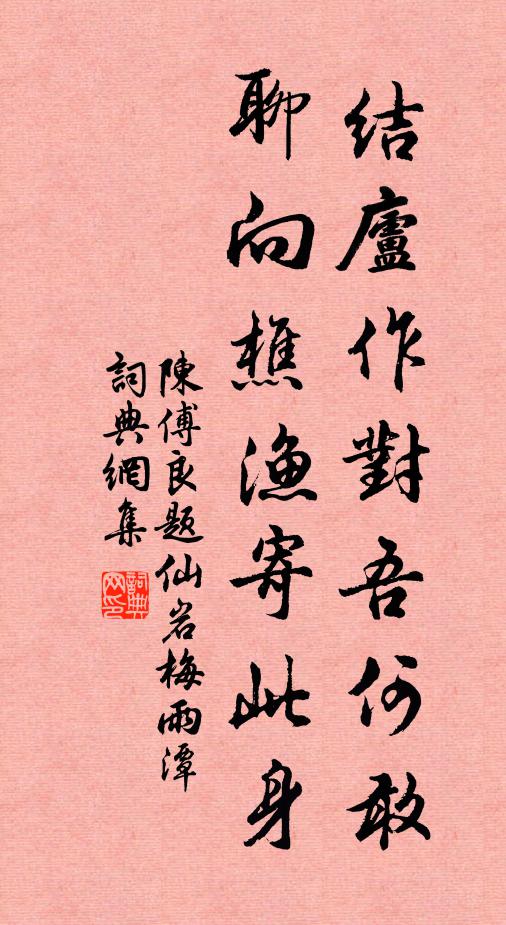 結廬作對吾何敢
聊向樵漁寄此身
陳傅良題仙岩梅雨潭
詞典網集
詞典网印